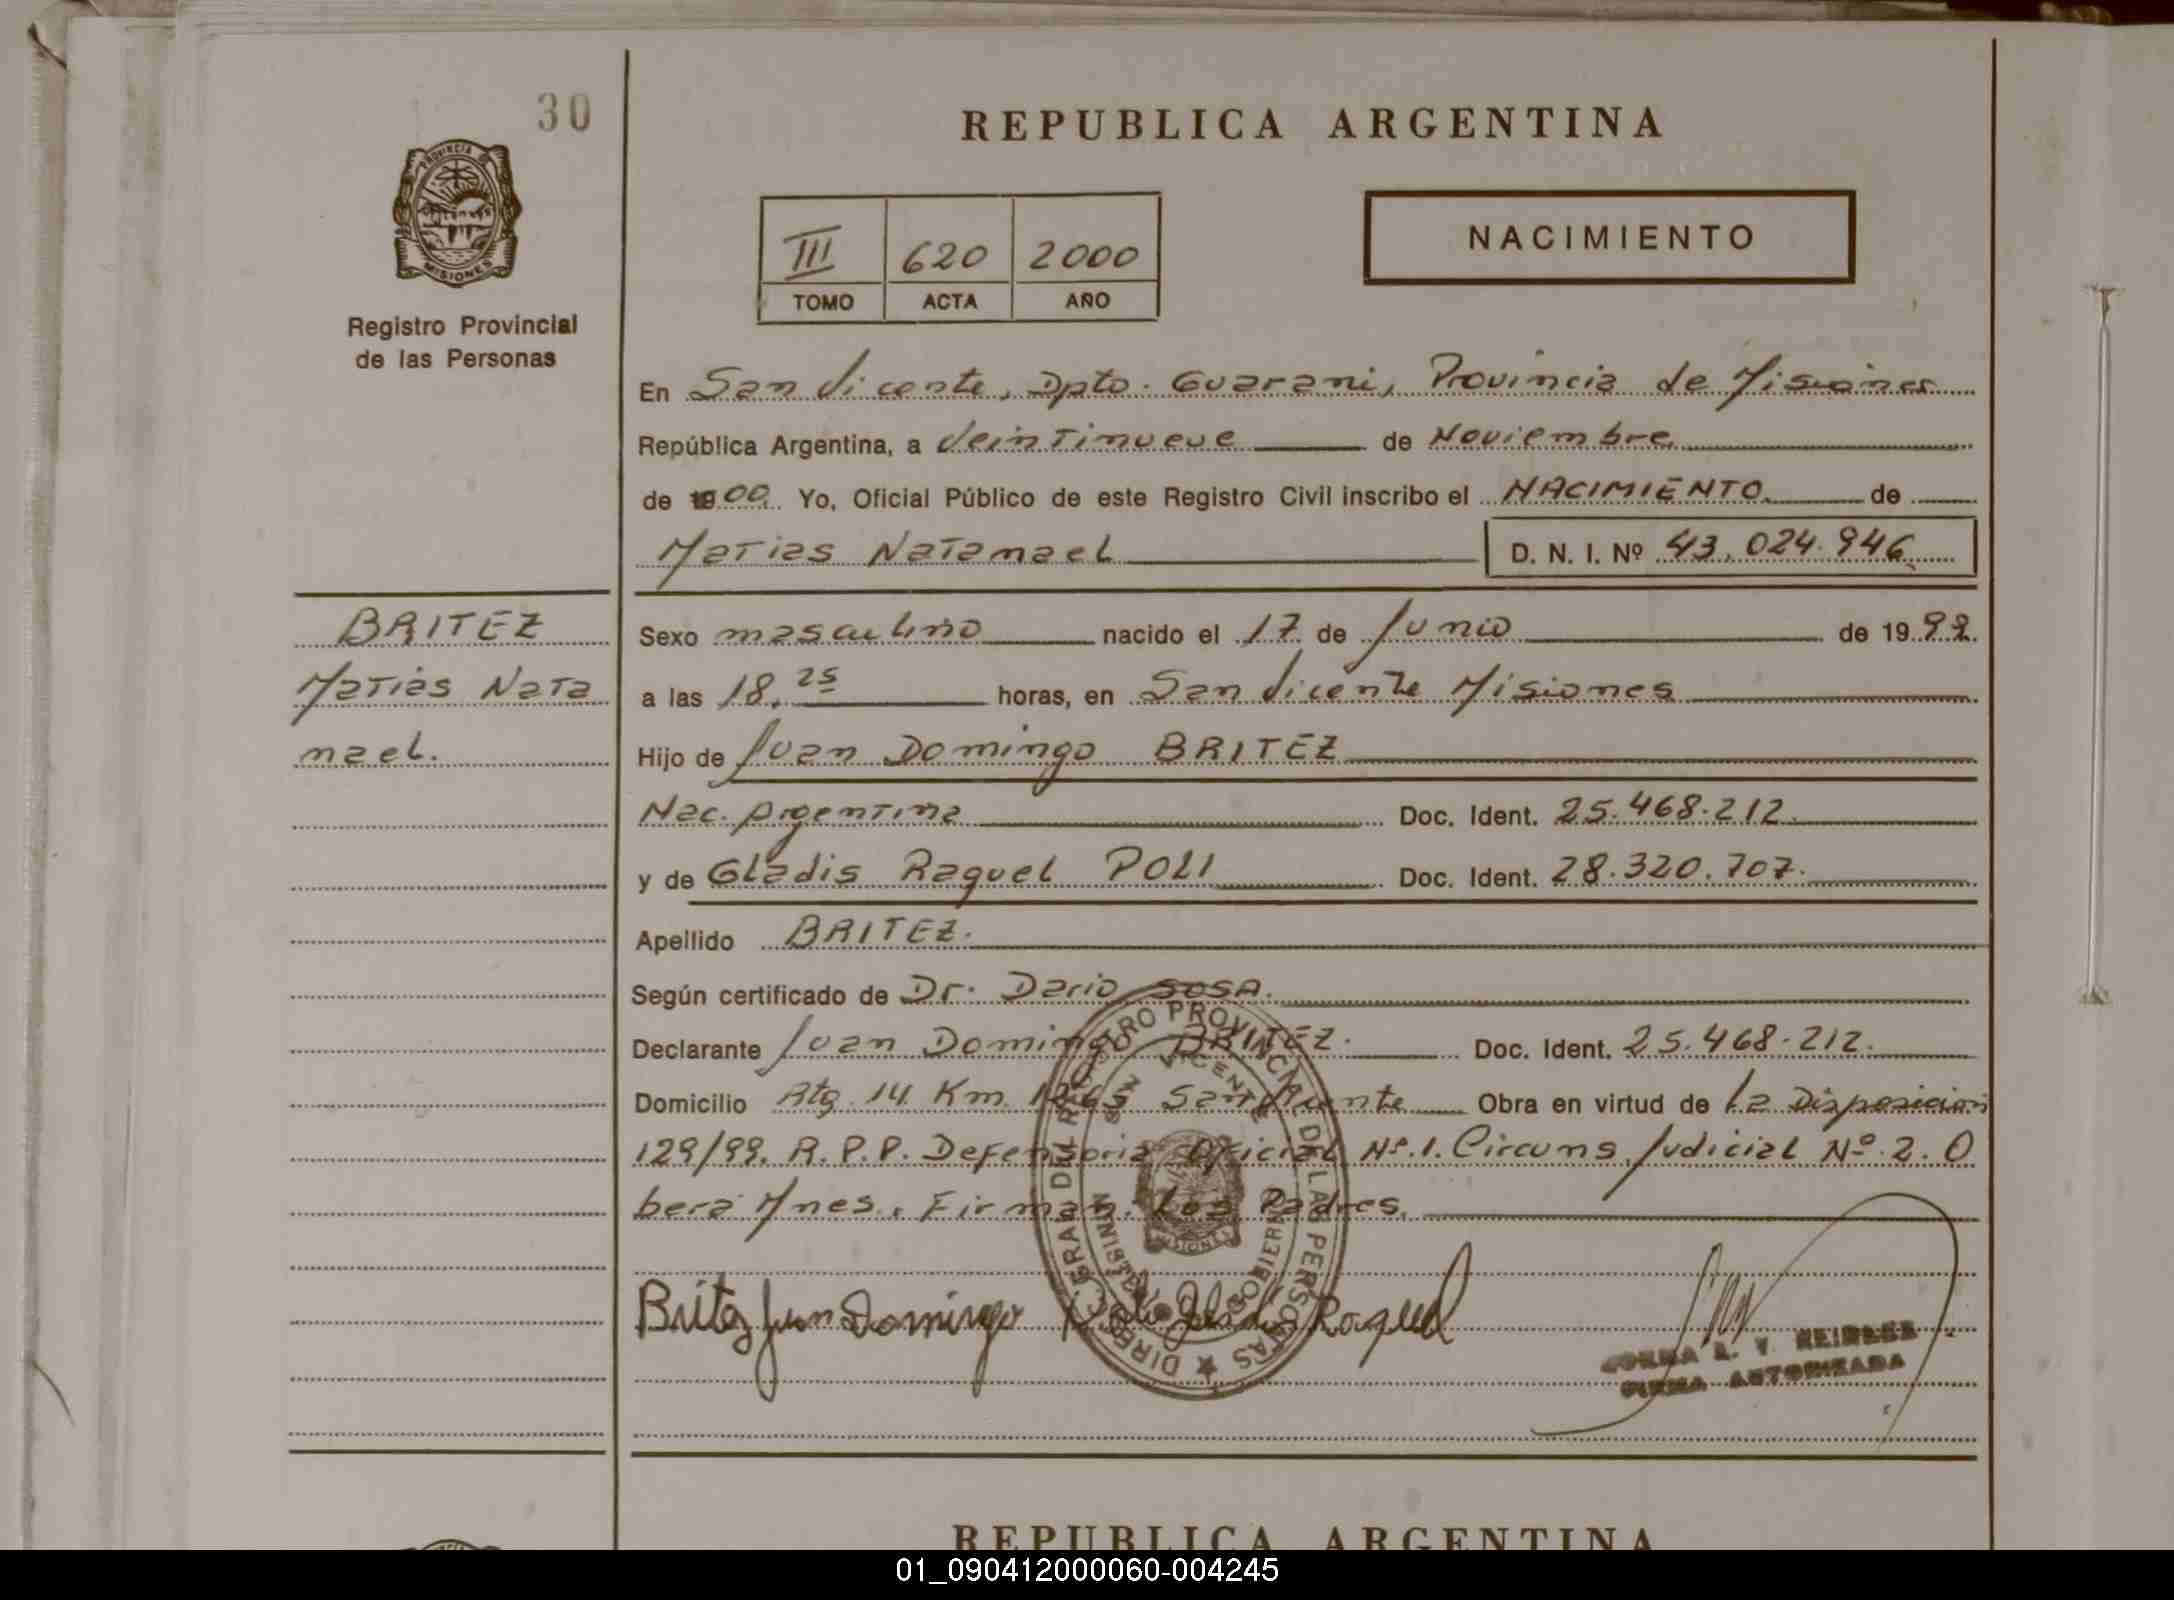 30
REPUBLICA ARGENTINA
PROVINCIA DE
MISIONES
Registro Provincial
de las Personas
III 620 2000
TOMO ACTA AÑO
NACIMIENTO
En San Vicente, Dpto. Guarani, Provincia de Misiones
República Argentina, a Veintinueve de Noviembre
de 1900 Yo, Oficial Público de este Registro Civil inscribo el NACIMIENTO de
Matias Natanael D. N. I. Nº 43.024.946
BRITEZ
Matias Nata
nael.
Sexo masculino nacido el 17 de Junio de 1999.
a las 18.25 horas, en San Vicente Misiones
Hijo de Juan Domingo BRITEZ
Nac. Argentina Doc. Ident. 25.468.212.
y de Gladis Raquel POLI Doc. Ident. 28.320.707.
Apellido BRITEZ.
Según certificado de Dr. Dario SOSA.
Declarante Juan Domingo BRITEZ. Doc. Ident. 25.468.212.
Domicilio Rta. 14 Km. 1265 San Vicente Obra en virtud de la Disposicion
129/99. R.P.P. Defensoria Oficial Nº.1. Circuns. Judicial Nº.2. O
bera Mnes. Firman. Los Padres.
DIRECC. GRAL. DEL REGISTRO PROVINCIAL DE LAS PERSONAS
SAN VICENTE
MINISTERIO GOBIERNO
MISIONES
Britez Juan Domingo Poli Gladis Raquel
FIRMA AUTORIZADA
REPUBLICA ARGENTINA
01_090412000060-004245